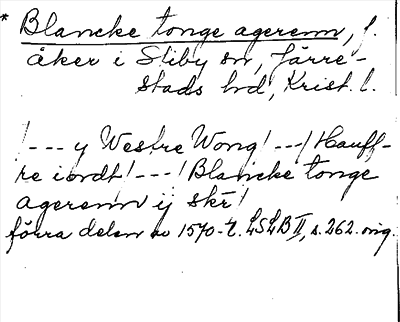 * Blancke tonge agerenn, f.
åker i Stiby sn, Järre-
stads hd, Krist. l.
! --- y Westre Wong! ---! Hauff-
re iordt! ---! Blancke tonge
agerenn ij skr!
förra delen av 1570-t. LSLB II, s. 262. orig.